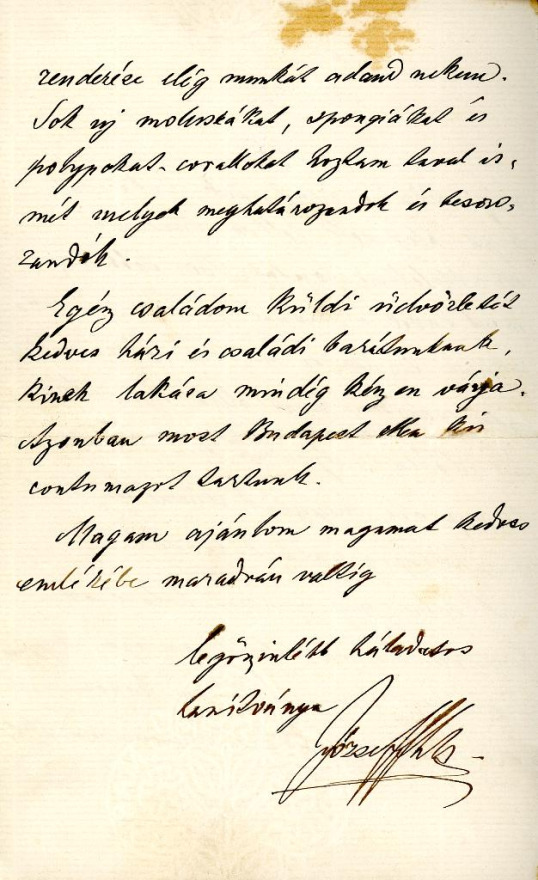 renderése elég munkát adand nekem.
Sok új molluskákat, spongiákat és
polypokat-corallokat hoztam tavál is-
mét melyek meghatározandók és besoro-
zandók.
Egész családom küldi üdvözletét
kedves házi és családi barátunknak,
kinek lakása mindég készen várja.
Azonban most Budapest
contumazot tartunk.
Magam ajánlom magamat kedves
emlékébe maradván valtig
legöszintébb háladatos
tanítványa
József